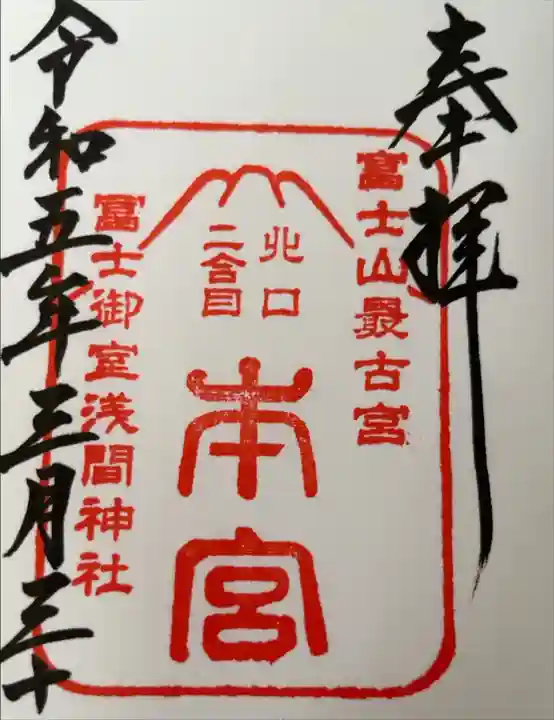 奉拝
冨士山最古宮
北口
二合目
本宮
冨士御室浅間神社
令和五年三月三十